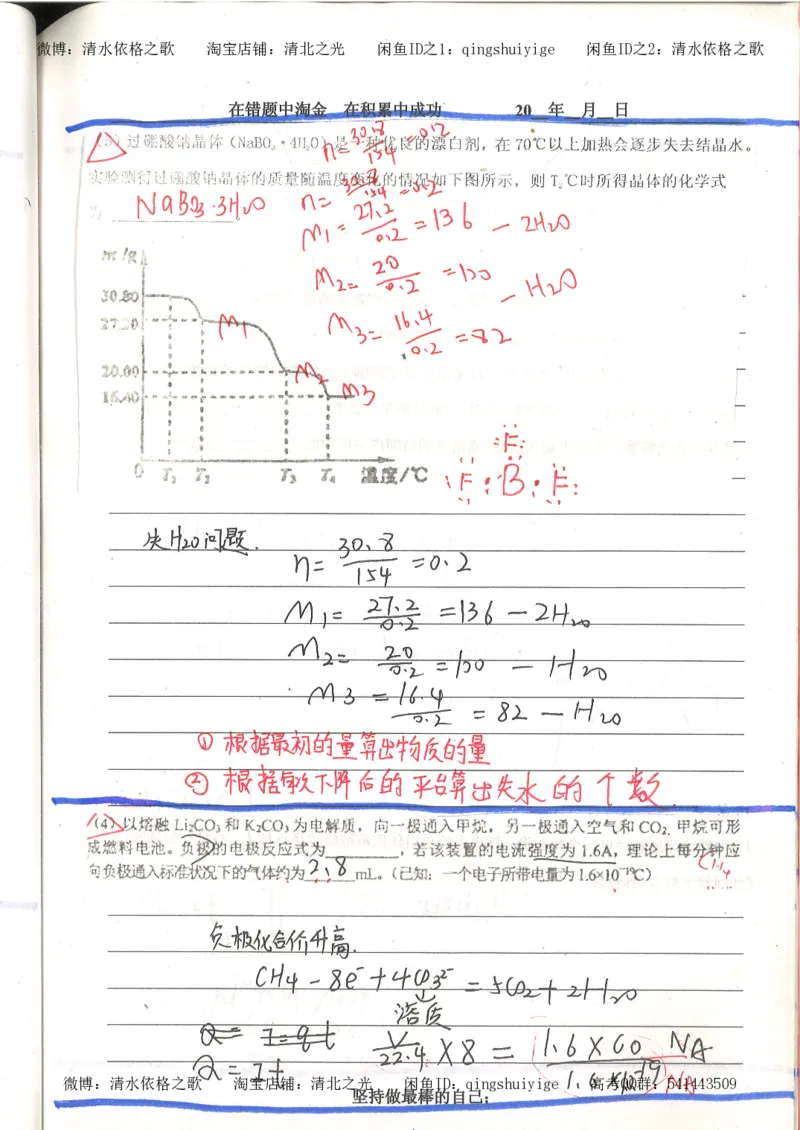 微博：清水依格之歌 淘宝店铺：清北之光 闲鱼ID之1：qingshuiyige 闲鱼ID之2：清水依格之歌
在错题中淘金 在积累中成功 20__年__月__日
过硼酸钠晶体（NaBO₃·4H₂O）是一种优良的漂白剂，在70℃以上加热会逐步失去结晶水。
n= 30.8/154 =0.2
实验测得过硼酸钠晶体的质量随温度变化的情况如下图所示，则T₂℃时所得晶体的化学式
n= 30.8/154 =0.2
为 NaBO₃·3H₂O
M₁= 27.2/0.2 =136 - 2H₂O
M₂= 20/0.2 =100 - H₂O
M₃= 16.4/0.2 =82
m/g
30.80
27.20 M₁
20.00 M₂
16.40 M₃
0 T₁ T₂ T₃ T₄ 温度/℃
:F:
:F:B:F:
失H₂O问题.
n= 30.8/154 =0.2
M₁= 27.2/0.2 =136 - 2H₂O
M₂= 20/0.2 =100 - H₂O
M₃ = 16.4/0.2 = 82 - H₂O
① 根据最初的量算出物质的量
② 根据每次下降后的平台算出失水的个数
（4）以熔融Li₂CO₃和K₂CO₃为电解质，向一极通入甲烷，另一极通入空气和CO₂，甲烷可形
成燃料电池。负极的电极反应式为________，若该装置的电流强度为1.6A，理论上每分钟应
向负极通入标准状况下的气体约为 2.8 mL。（已知：一个电子所带电量为1.6×10⁻¹⁹C）
负极化合价升高.
CH₄ - 8e⁻ + 4CO₃²⁻ = 5CO₂ + 2H₂O
溶质
V/22.4 × 8 = 1.6×60/1.6×10⁻¹⁹ NA
Q = It
微博：清水依格之歌 淘宝店铺：清北之光 闲鱼ID：qingshuiyige 高考QQ群：541443509
坚持做最棒的自己；